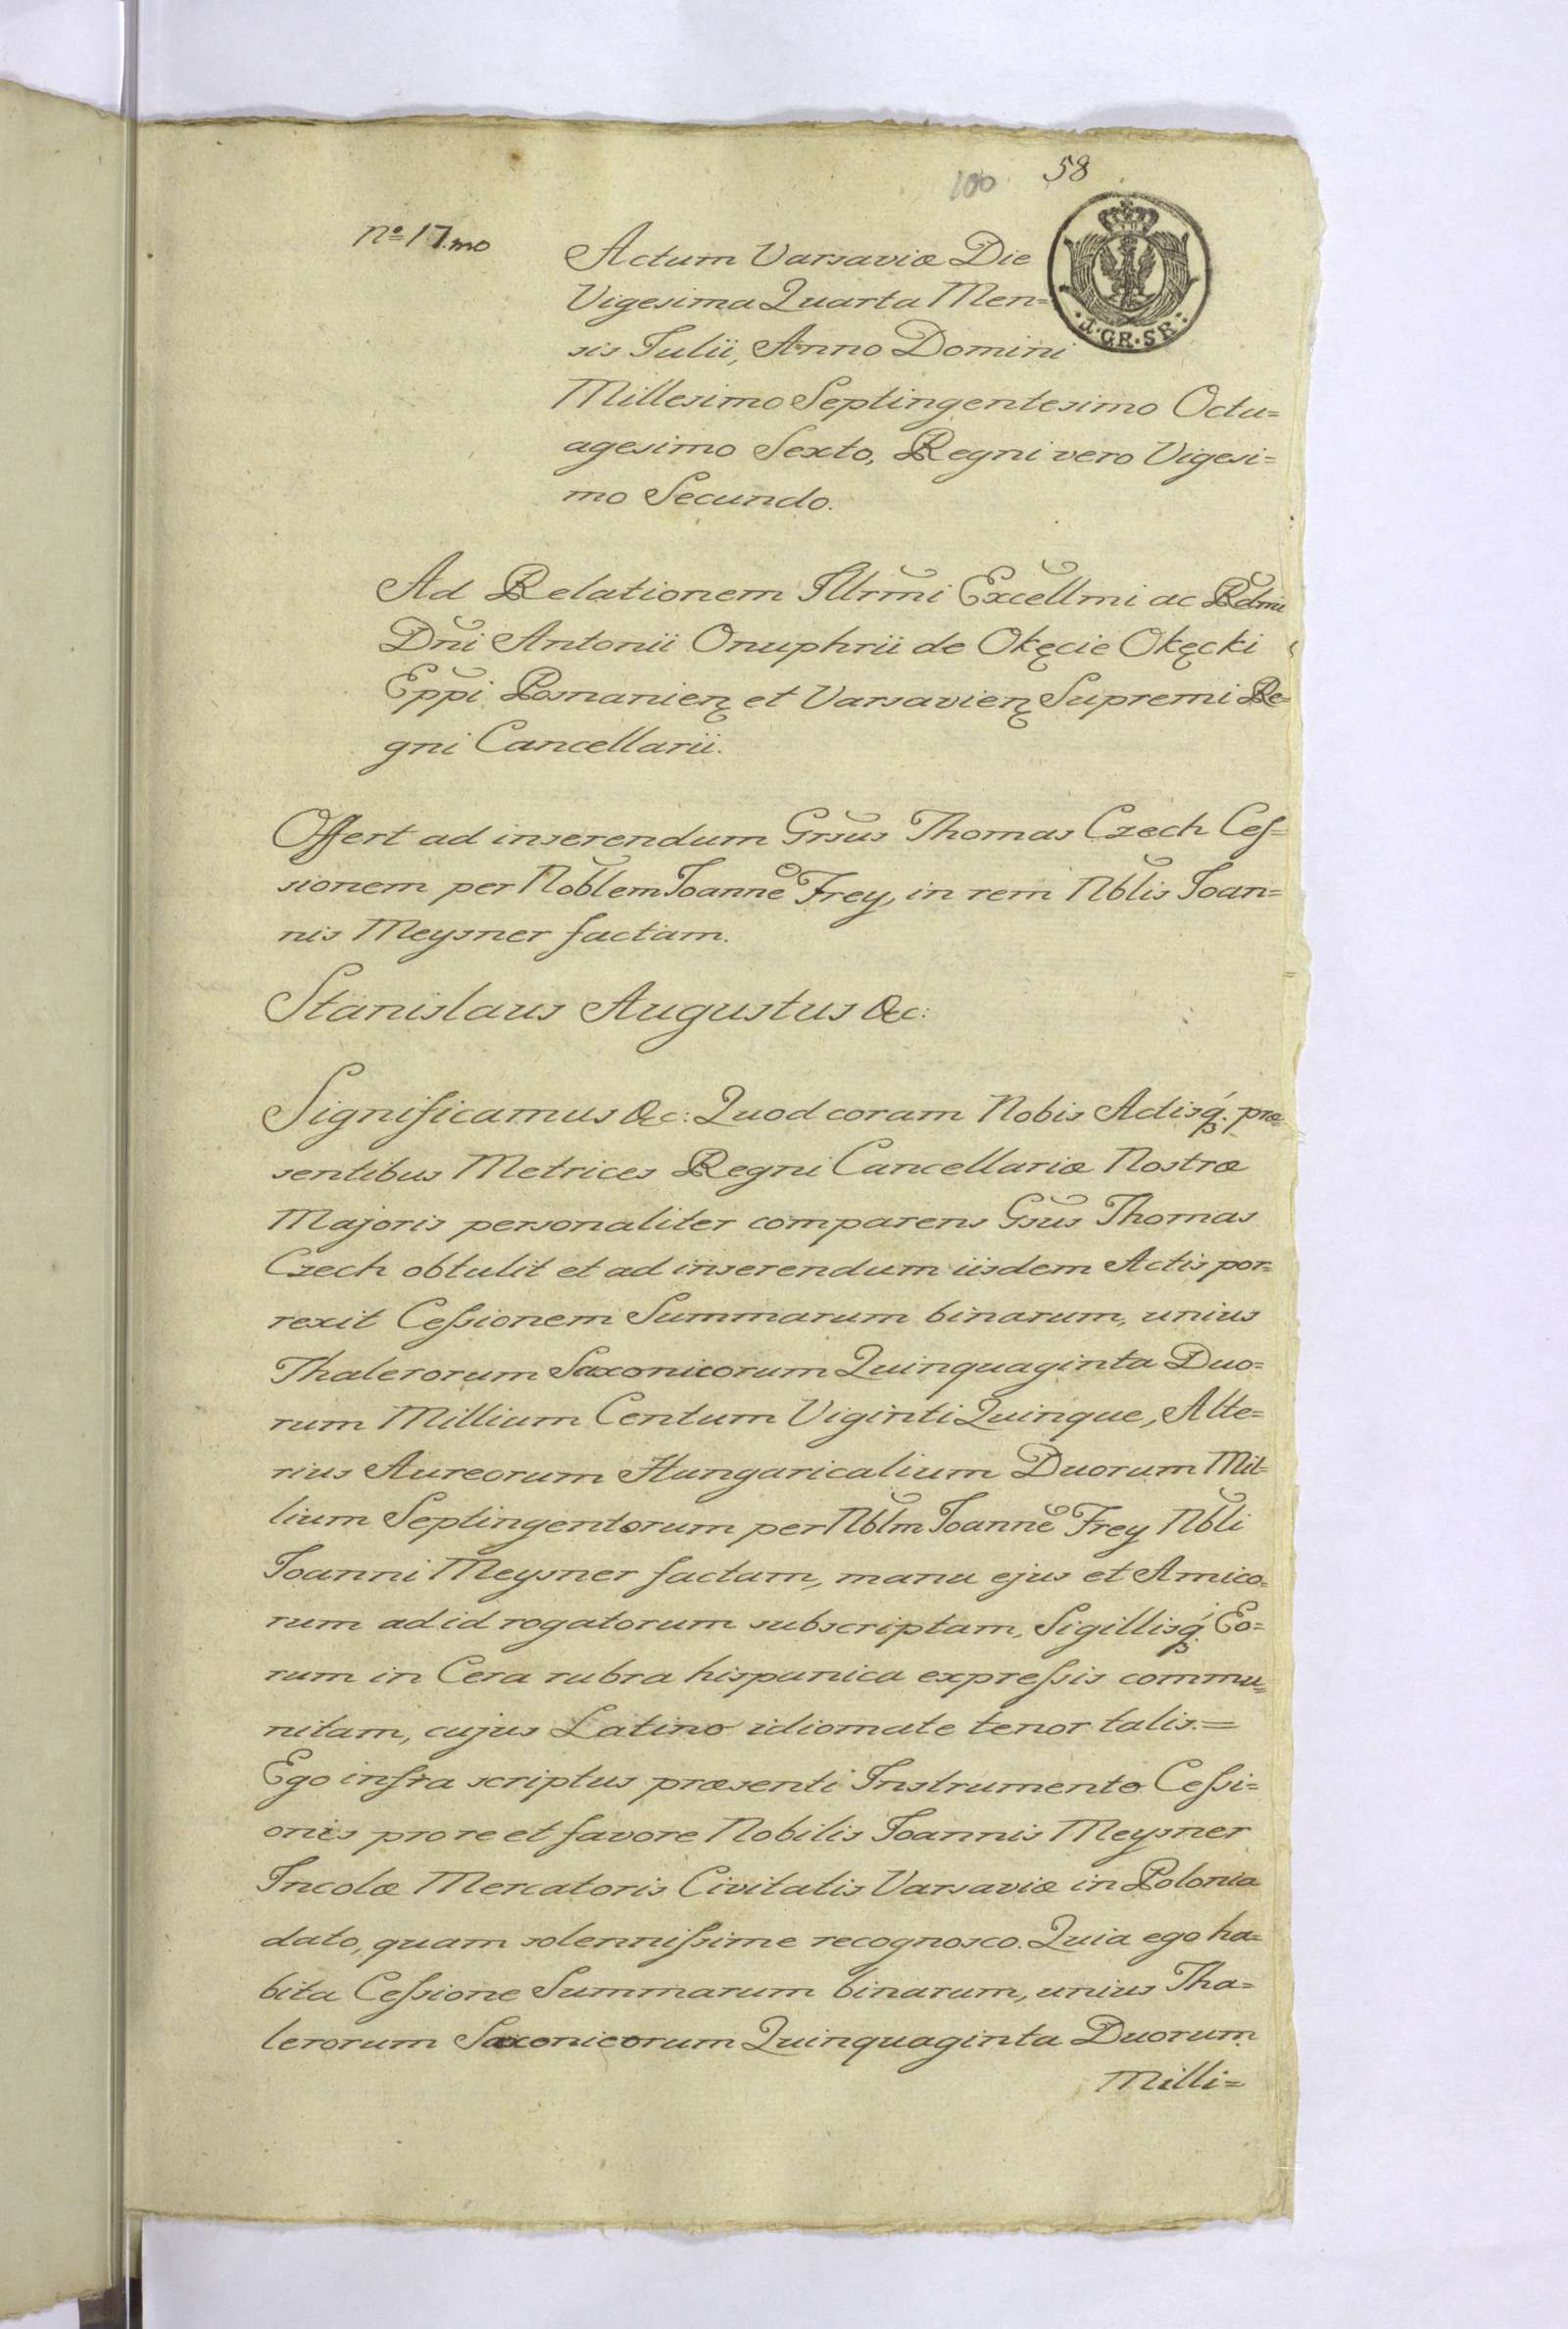 100 58
No 17mo
·1·GR·SR·
Actum Varsaviæ Die
Vigesima Quarta Men=
sis Iulii, Anno Domini
Millesimo Septingentesimo Octu=
agesimo Sexto, Regni vero Vigesi=
mo Secundo.
Ad Relationem Illrmi Excellmi ac Rdmi
Dni Antonii Onuphrii de Okęcie Okęcki
Eppi Posnanien et Varsavien Supremi Re=
gni Cancellarii.
Offert ad inserendum Grsus Thomas Czech Ceſ=
sionem per Noblem Joanne Frey, in rem Nblis Joan=
nis Meysner factam.
Stanislaus Augustus &c:
Significamus &c: Quod coram Nobis Actisq. præ=
sentibus Metrices Regni Cancellariæ Nostræ
Majoris personaliter comparens Gsus Thomas
Czech obtulit et ad inserendum iisdem Actis por=
rexit Ceſsionem Summarum binarum, unius
Thalerorum Saxonicorum Quinquaginta Duo=
rum Millium Centum Viginti Quinque, Alte=
rius Aureorum Hungaricalium Duorum Mil=
lium Septingentorum per Nblm Joanne Frey Nbli
Joanni Meysner factam, manu ejus et Amico=
rum ad id rogatorum subscriptam, Sigillisq. Eo=
rum in Cera rubra hispanica expreſsis commu=
nitam, cujus Latino idiomate tenor talis.=
Ego infra scriptus præsenti Instrumento Ceſsi=
onis pro re et favore Nobilis Joannis Meysner
Incolæ Mercatoris Civitatis Varsaviæ in Polonia
dato, quam solenniſsime recognosco. Quia ego ha=
bita Ceſsione Summarum binarum, unius Tha=
lerorum Saxonicorum Quinquaginta Duorum
Milli=